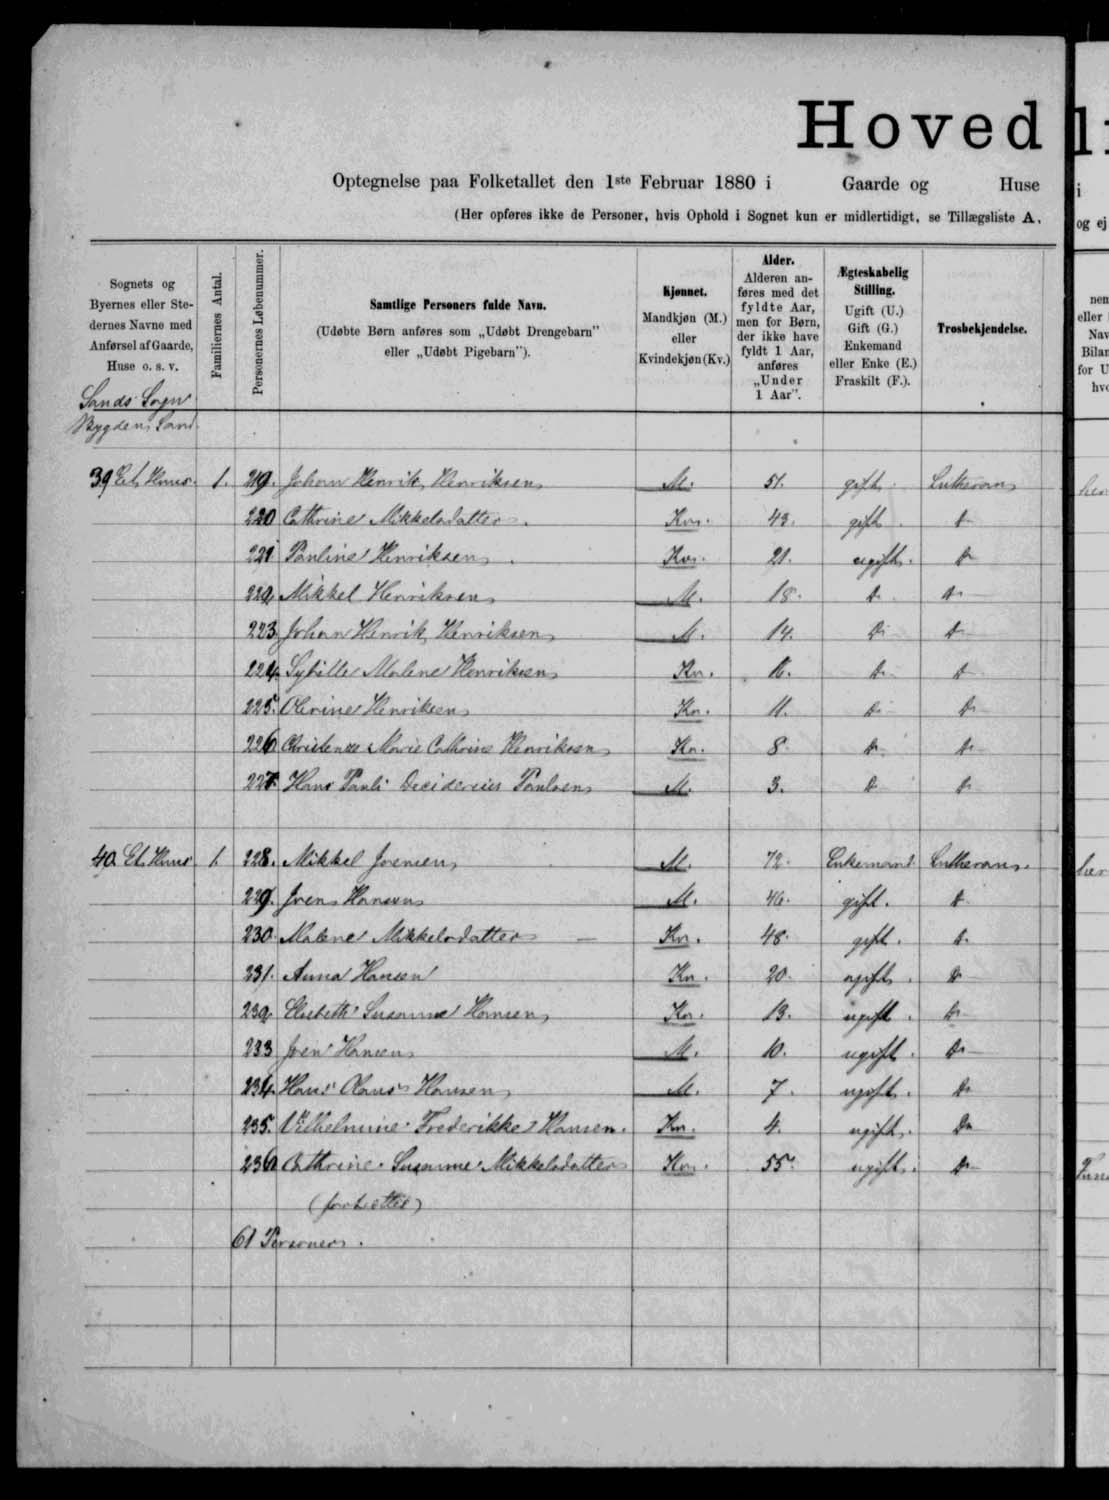 Hoved
Optegnelse paa Folketallet den 1ste Februar 1880 i Gaarde og Huse
(Her opføres ikke de Personer, hvis Ophold i Sognet kun er midlertidigt, se Tillægsliste A,
Sognets og Byernes eller Stedernes Navne med Anførsel af Gaarde, Huse o. s. v.
Familiernes Antal.
Personernes Løbenummer.
Samtlige Personers fulde Navn.
(Udøbte Børn anføres som „Udøbt Drengebarn"
eller „Udøbt Pigebarn").
Kjønnet.
Mandkjøn (M.)
eller
Kvindekjøn (Kv.)
Alder.
Alderen anføres med det fyldte Aar, men for Børn, der ikke have fyldt 1 Aar, anføres „Under 1 Aar".
Ægteskabelig Stilling.
Ugift (U.)
Gift (G.)
Enkemand
eller Enke (E.)
Fraskilt (F.).
Trosbekjendelse.
Sands Sogn
Bygden Sand
39 Et Huus. 1. 219. Johan Henrik Henriksen M. 51. gift. Lutheran
220 Cathrine Mikkelsdatter. Kv. 43. gift. Do
221 Pauline Henriksen. Kv. 21. ugift. Do
222 Mikkel Henriksen M. 18. Do Do
223 Johan Henrik Henriksen M. 14. Do Do
224. Sybille Malene Henriksen Kv. 16. Do Do
225. Olevine Henriksen Kv. 11. Do Do
226 Marie Cathrine Henriksen Kv. 8. Do Do
227 Hans Pauli Decidereus Paulsen M. 3. Do Do
40 Et Huus 1. 228. Mikkel Joensen M. 72. Enkemand Lutheran.
229. Joen Hansen M. 46. gift. Do
230. Malene Mikkelsdatter Kv. 48. gift. Do
231. Anna Hansen Kv. 20. ugift. Do
232 Elsebeth Susanne Hansen Kv. 13. ugift. Do
233 Joen Hansen M. 10. ugift. Do
234. Hans Claus Hansen M. 7. ugift. Do
235. Vilhelmine Frederikke Hansen. Kv. 4. ugift. Do
236 Cathrine Susanne Mikkelsdatter Kv. 55. ugift. Do
61 Personer.